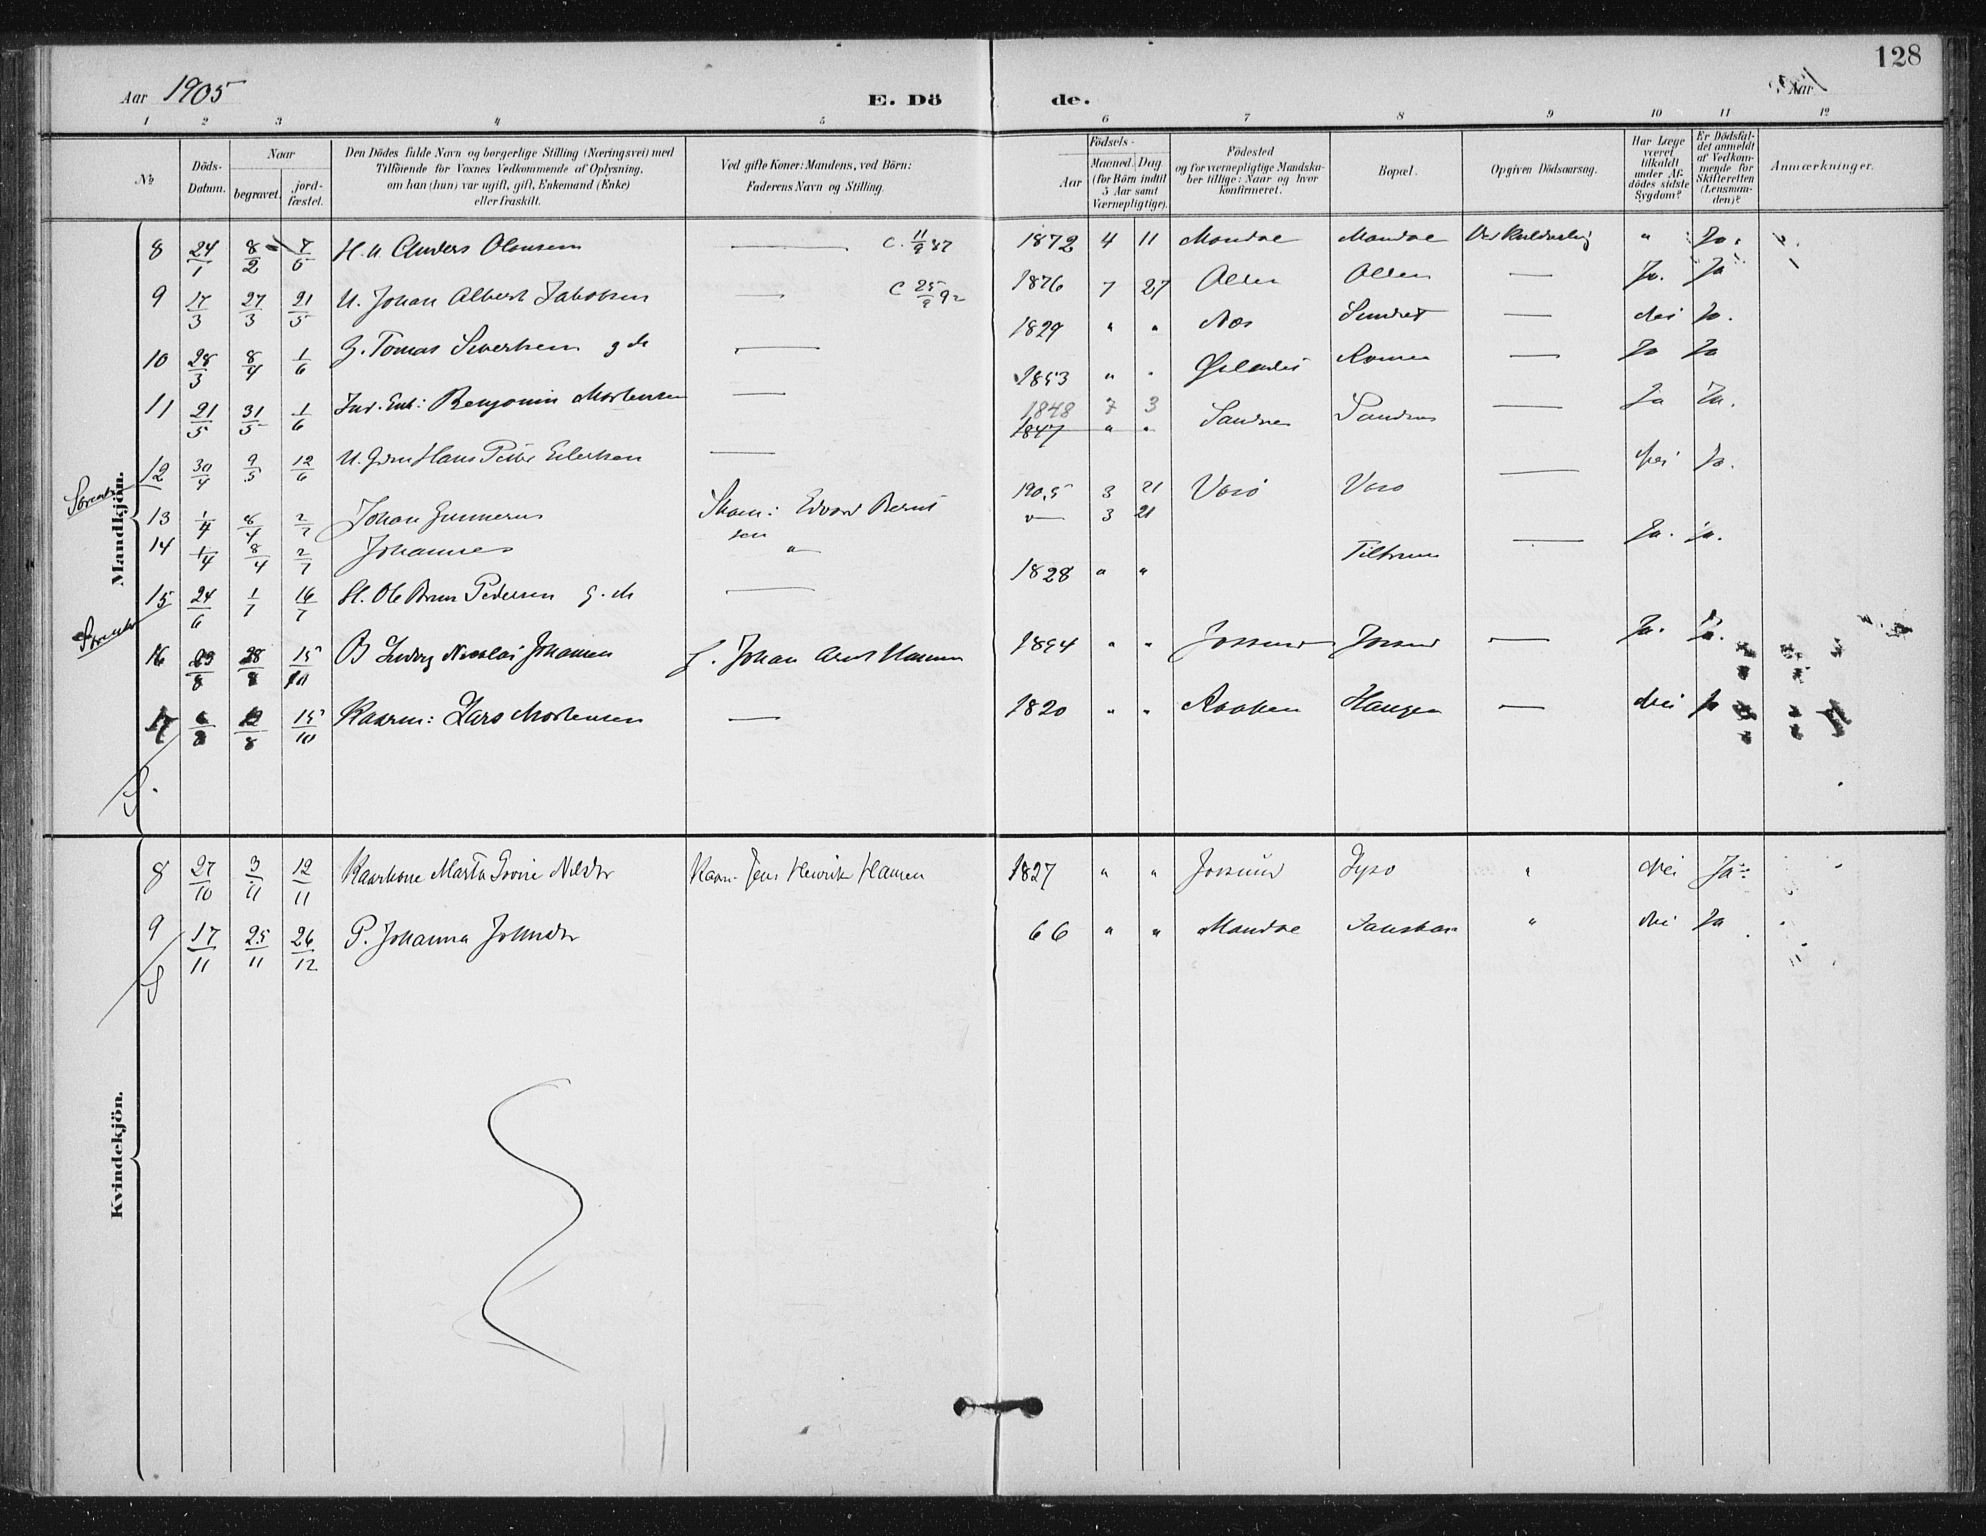 128
Aar 1905
E. Dö de.
Aar
1 2 3 4 5 6 7 8 9 10 11 12
No
Döds-Datum.
Naar
begravet.
jord-fæstet.
Den Dödes fulde Navn og borgerlige Stilling (Næringsvei) med
Tilföiende for Voxnes Vedkommende af Oplysning,
om han (hun) var ugift, gift, Enkemand (Enke)
eller fraskilt.
Ved gifte Koner: Mandens, ved Börn:
Faderens Navn og Stilling.
Födsels-
Aar
Maaned Dag
(for Börn indtil
5 Aar samt
Værnepligtige).
Födested
og for værnepligtige Mandska-
ber tillige: Naar og hvor
konfirmeret.
Bopæl.
Opgiven Dödsaarsag.
Har Læge
været
tilkaldt
under Af-
dödes sidste
Sygdom?
Er Dödsfal-
det anmeldt
af Vedkom-
mende for
Skifteretten
(Lensman-
den)?
Anmærkninger.
Mandkjön.
8 24/1 8/2 7/5 Anders Olausen — C. 11/9 87 1872 4 11 Mondoe Mondoe " Ja.
9 17/3 27/3 21/5 U. Johan Albert Jakobsen — C 25/9 92 1876 7 27 Olden Olden — Ja. Ja
10 28/3 8/4 1/6 G. Tomas Sivertsen — 1829 " " Næs — Nei Ja.
11 21/5 31/5 1/6 Ind. Enk: Benjamin Mortensen — 1853 " " — Ja Ja
12 30/4 9/5 12/6 U. Hans Peter Eilertsen — 1848 7 3 1847 " " Sandnes Sandnes — Ja Ja.
13 1/4 8/4 2/7 Johan Gunnerus Edvard Bernt sen 1905 3 21 — Nei Ja.
14 1/4 8/4 2/7 Johannes " 3 21
15 24/6 1/7 16/7 Pedersen — 1828 " " Tiltrum — Ja. Ja.
16 8 28/8 15/10 Ludvig Nicolai Johansen f. Johan Arnt Hansen 1894 " " Jossund Jossund — Ja. Ja.
17 8 8 15/10 Kaarm: Lars Mortensen — 1820 " " Haugen — Nei Ja
Kvindekjön.
8 27/10 3/11 12/11 Kaarkone Marta Nilsdtr Kaarm. Jens Henrik Hansen 1827 " " Jossund " Nei Ja
9 17/11 25/11 26/12 P. Johanna Johnsdtr 66 " " Mondoe " Nei Ja